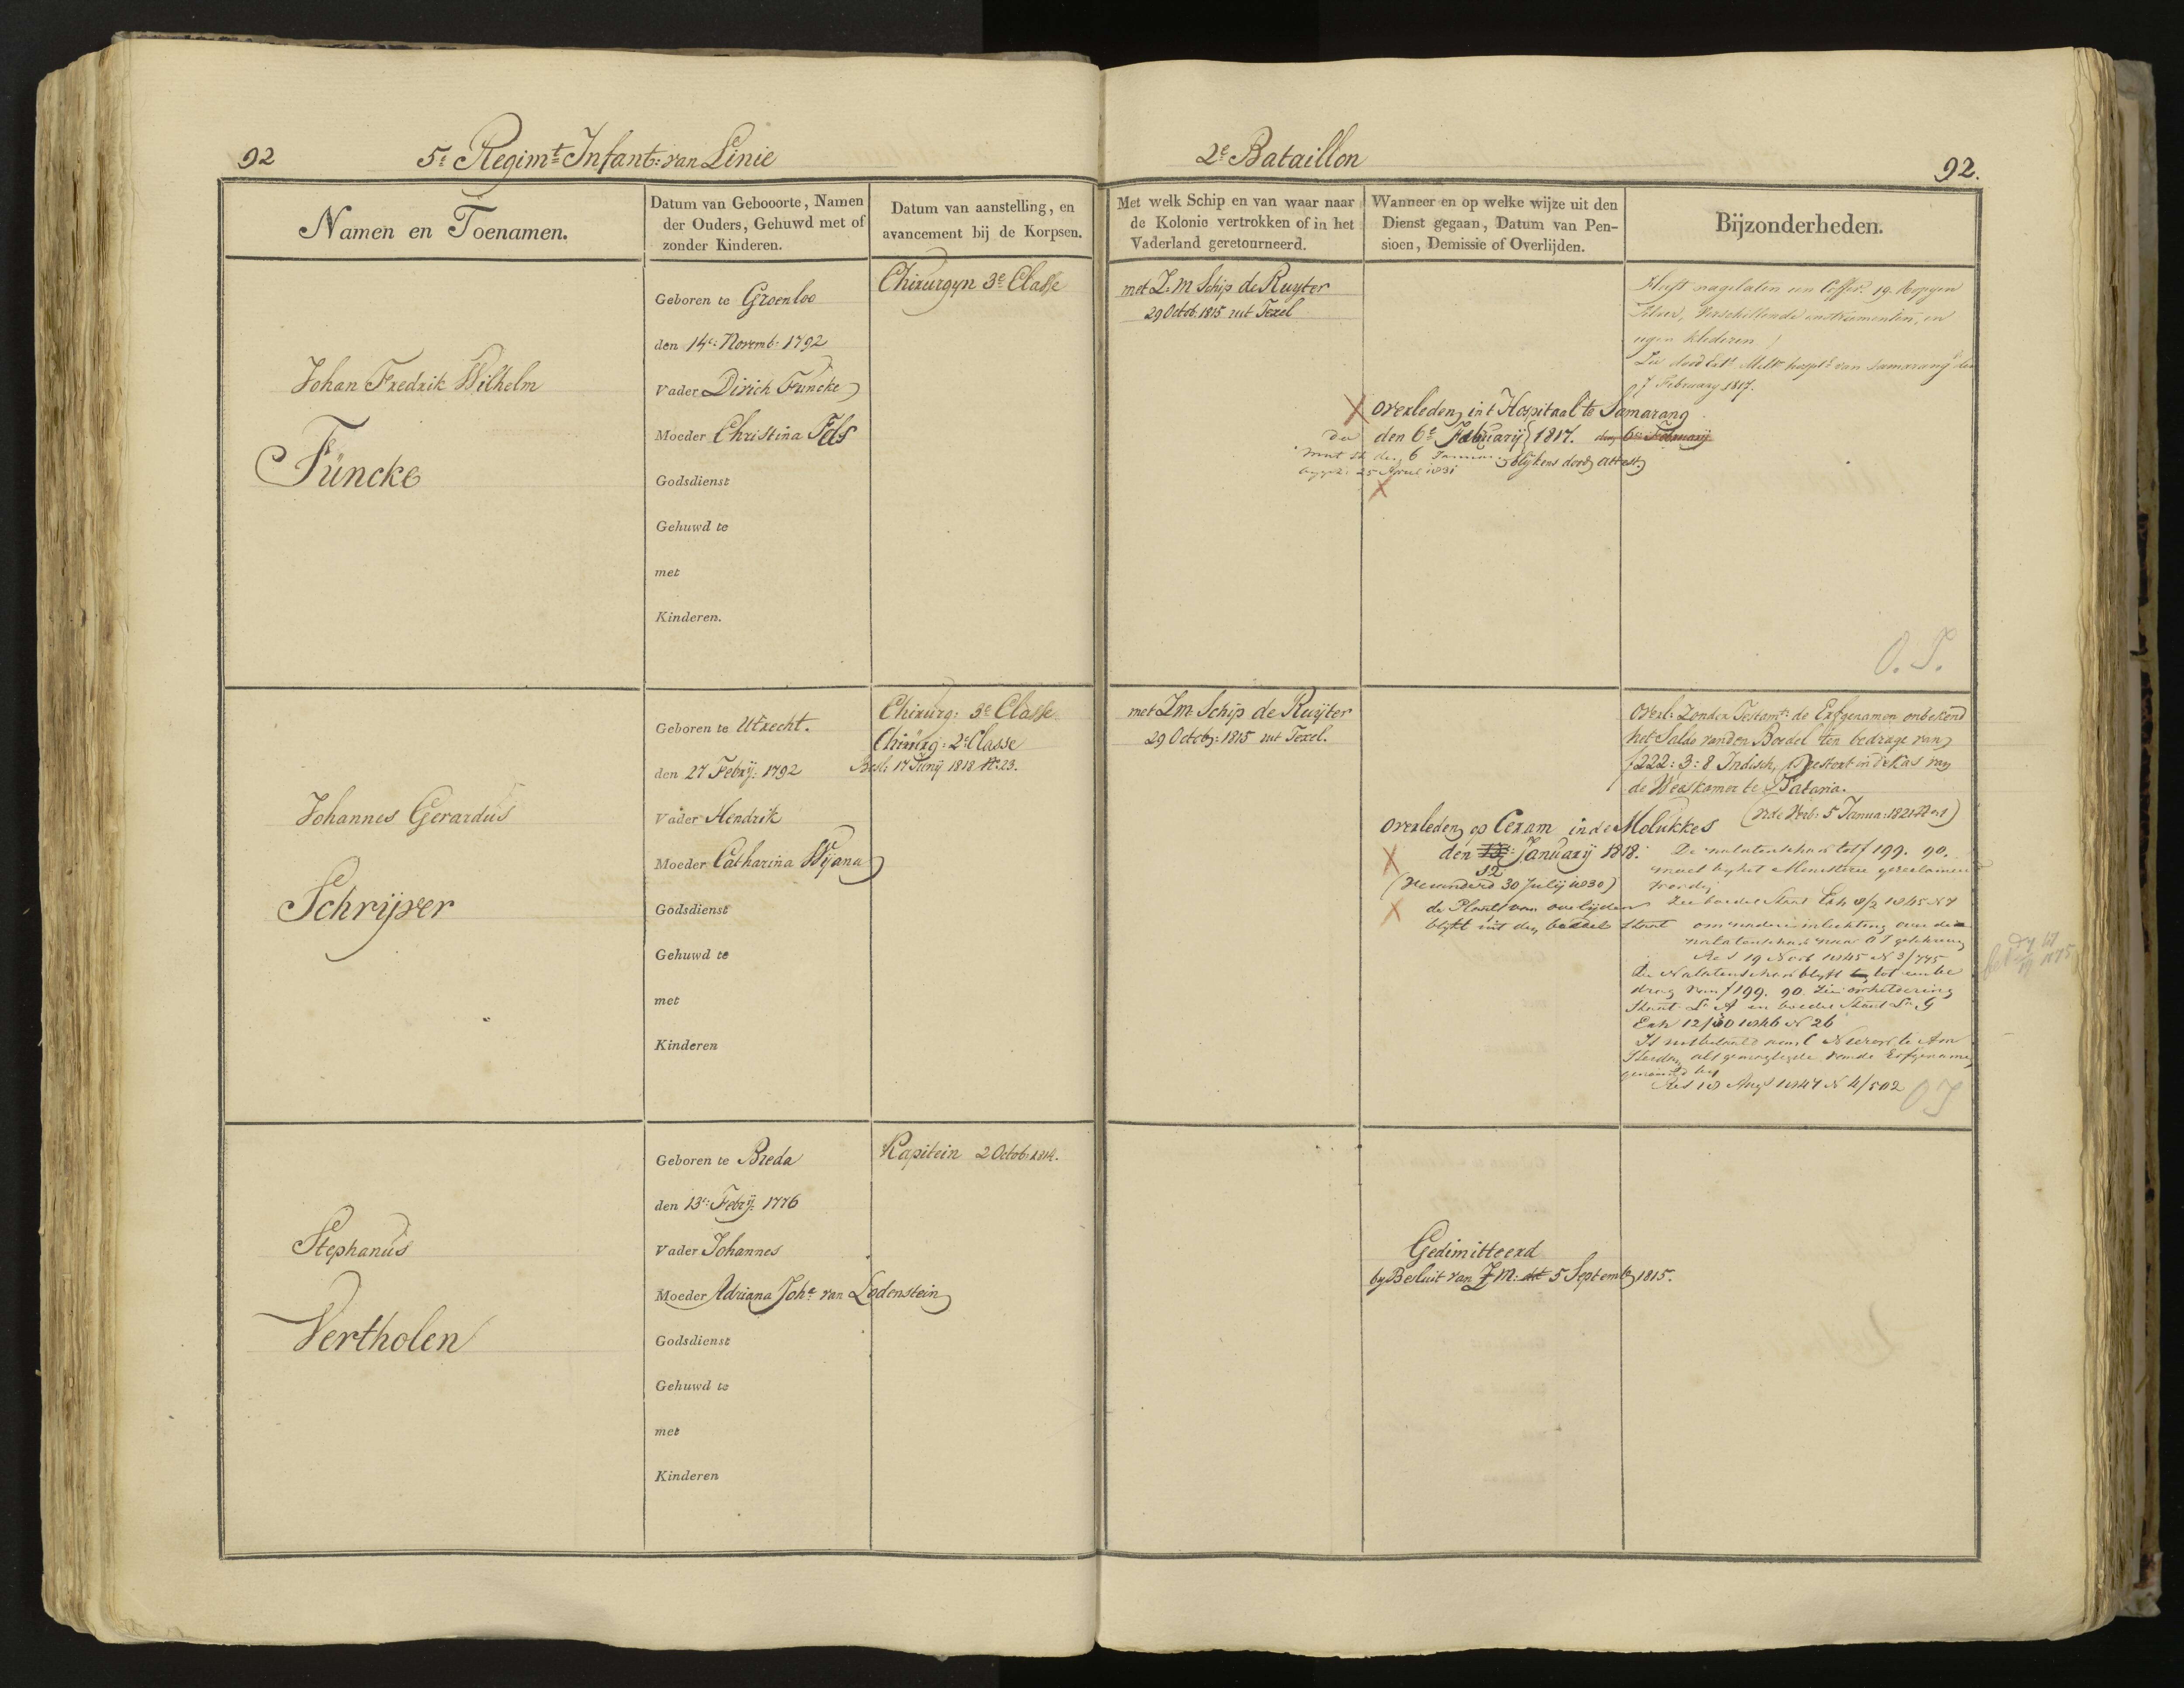 92
5e Regimt Infant: van Linie
2e Bataillon
92.
Namen en Toenamen.
Datum van Gebooorte, Namen
der Ouders, Gehuwd met of
zonder Kinderen.
Datum van aanstelling, en
avancement bij de Korpsen.
Met welk Schip en van waar naar
de Kolonie vertrokken of in het
Vaderland geretourneerd.
Wanneer en op welke wijze uit den
Dienst gegaan, Datum van Pen-
sioen, Demissie of Overlijden.
Bijzonderheden.
Johan Fredrik Wilhelm
Füncke
Geboren te Groenloo
den 14e: Novemb: 1792
Vader Dirich Funcke
Moeder Christina Fels
Godsdienst
Gehuwd te
met
Kinderen.
Chirurgyn 3e Classe
met Z.M Schip de Ruyter
29 Octob. 1815 uit Texel
Overleden in t Hospitaal te Samarang
den 6e February 1817. den 6e February
blijkens dood attest
25 April 1831
Heeft nagelaten een Coffer 19. Ropyen
Zilver, Verschillende instrumenten, en
eigen klederen
van Samarang
7 February 1817.
O.I.
Johannes Gerardus
Schrijver
Geboren te Utrecht.
den 27 Febry: 1792
Vader Hendrik
Moeder Catharina Wijana
Godsdienst
Gehuwd te
met
Kinderen
Chirurg: 3e Classe
Chirurg: 2e Classe
Besl: 17 Junij 1818 No 23.
met Z.M. Schip de Ruijter
29 Octob: 1815 uit Texel.
Overleden op Ceram in de Molukkes
den 13: January 1818.
12
(Veranderd 30 Julij 1830)
de Plaats van overlijden
blijkt uit den boedel Staat
Overl: Zonder Testamt: de Erfgenamen onbekend
het Saldo van den Boedel ten bedrage van
f222:3:8 Indisch, is gestort in de Kas van
de Weeskamer te Batavia.
(Vide Verb: 5 Janua: 1821 No 1)
De nalatenschap tot f 199. 90.
moet by het Ministerie gereclameerd
worden
om nadere inlichting over de
nalatenschap naar OI geschreven
19 Novb 1845 N 3/775
De Nalatenschap blyft tot een be
drag van f 199. 90 zie opheldering
Staat La A en boedel Staat La G
Exh 12/30 1846 N 26
Is uitbetaald aan
sterdam als gemagtigde van de Erfgenamen
18 Augs 1847 N 4/502
OI
Stephanus
Vertholen
Geboren te Breda
den 13e: Febry: 1776
Vader Johannes
Moeder Adriana Joha van Lodenstein
Godsdienst
Gehuwd te
met
Kinderen
Kapitein 2 Octob: 1814.
Gedimitteerd
by Besluit van Z.M: dd 5 Septemb 1815.